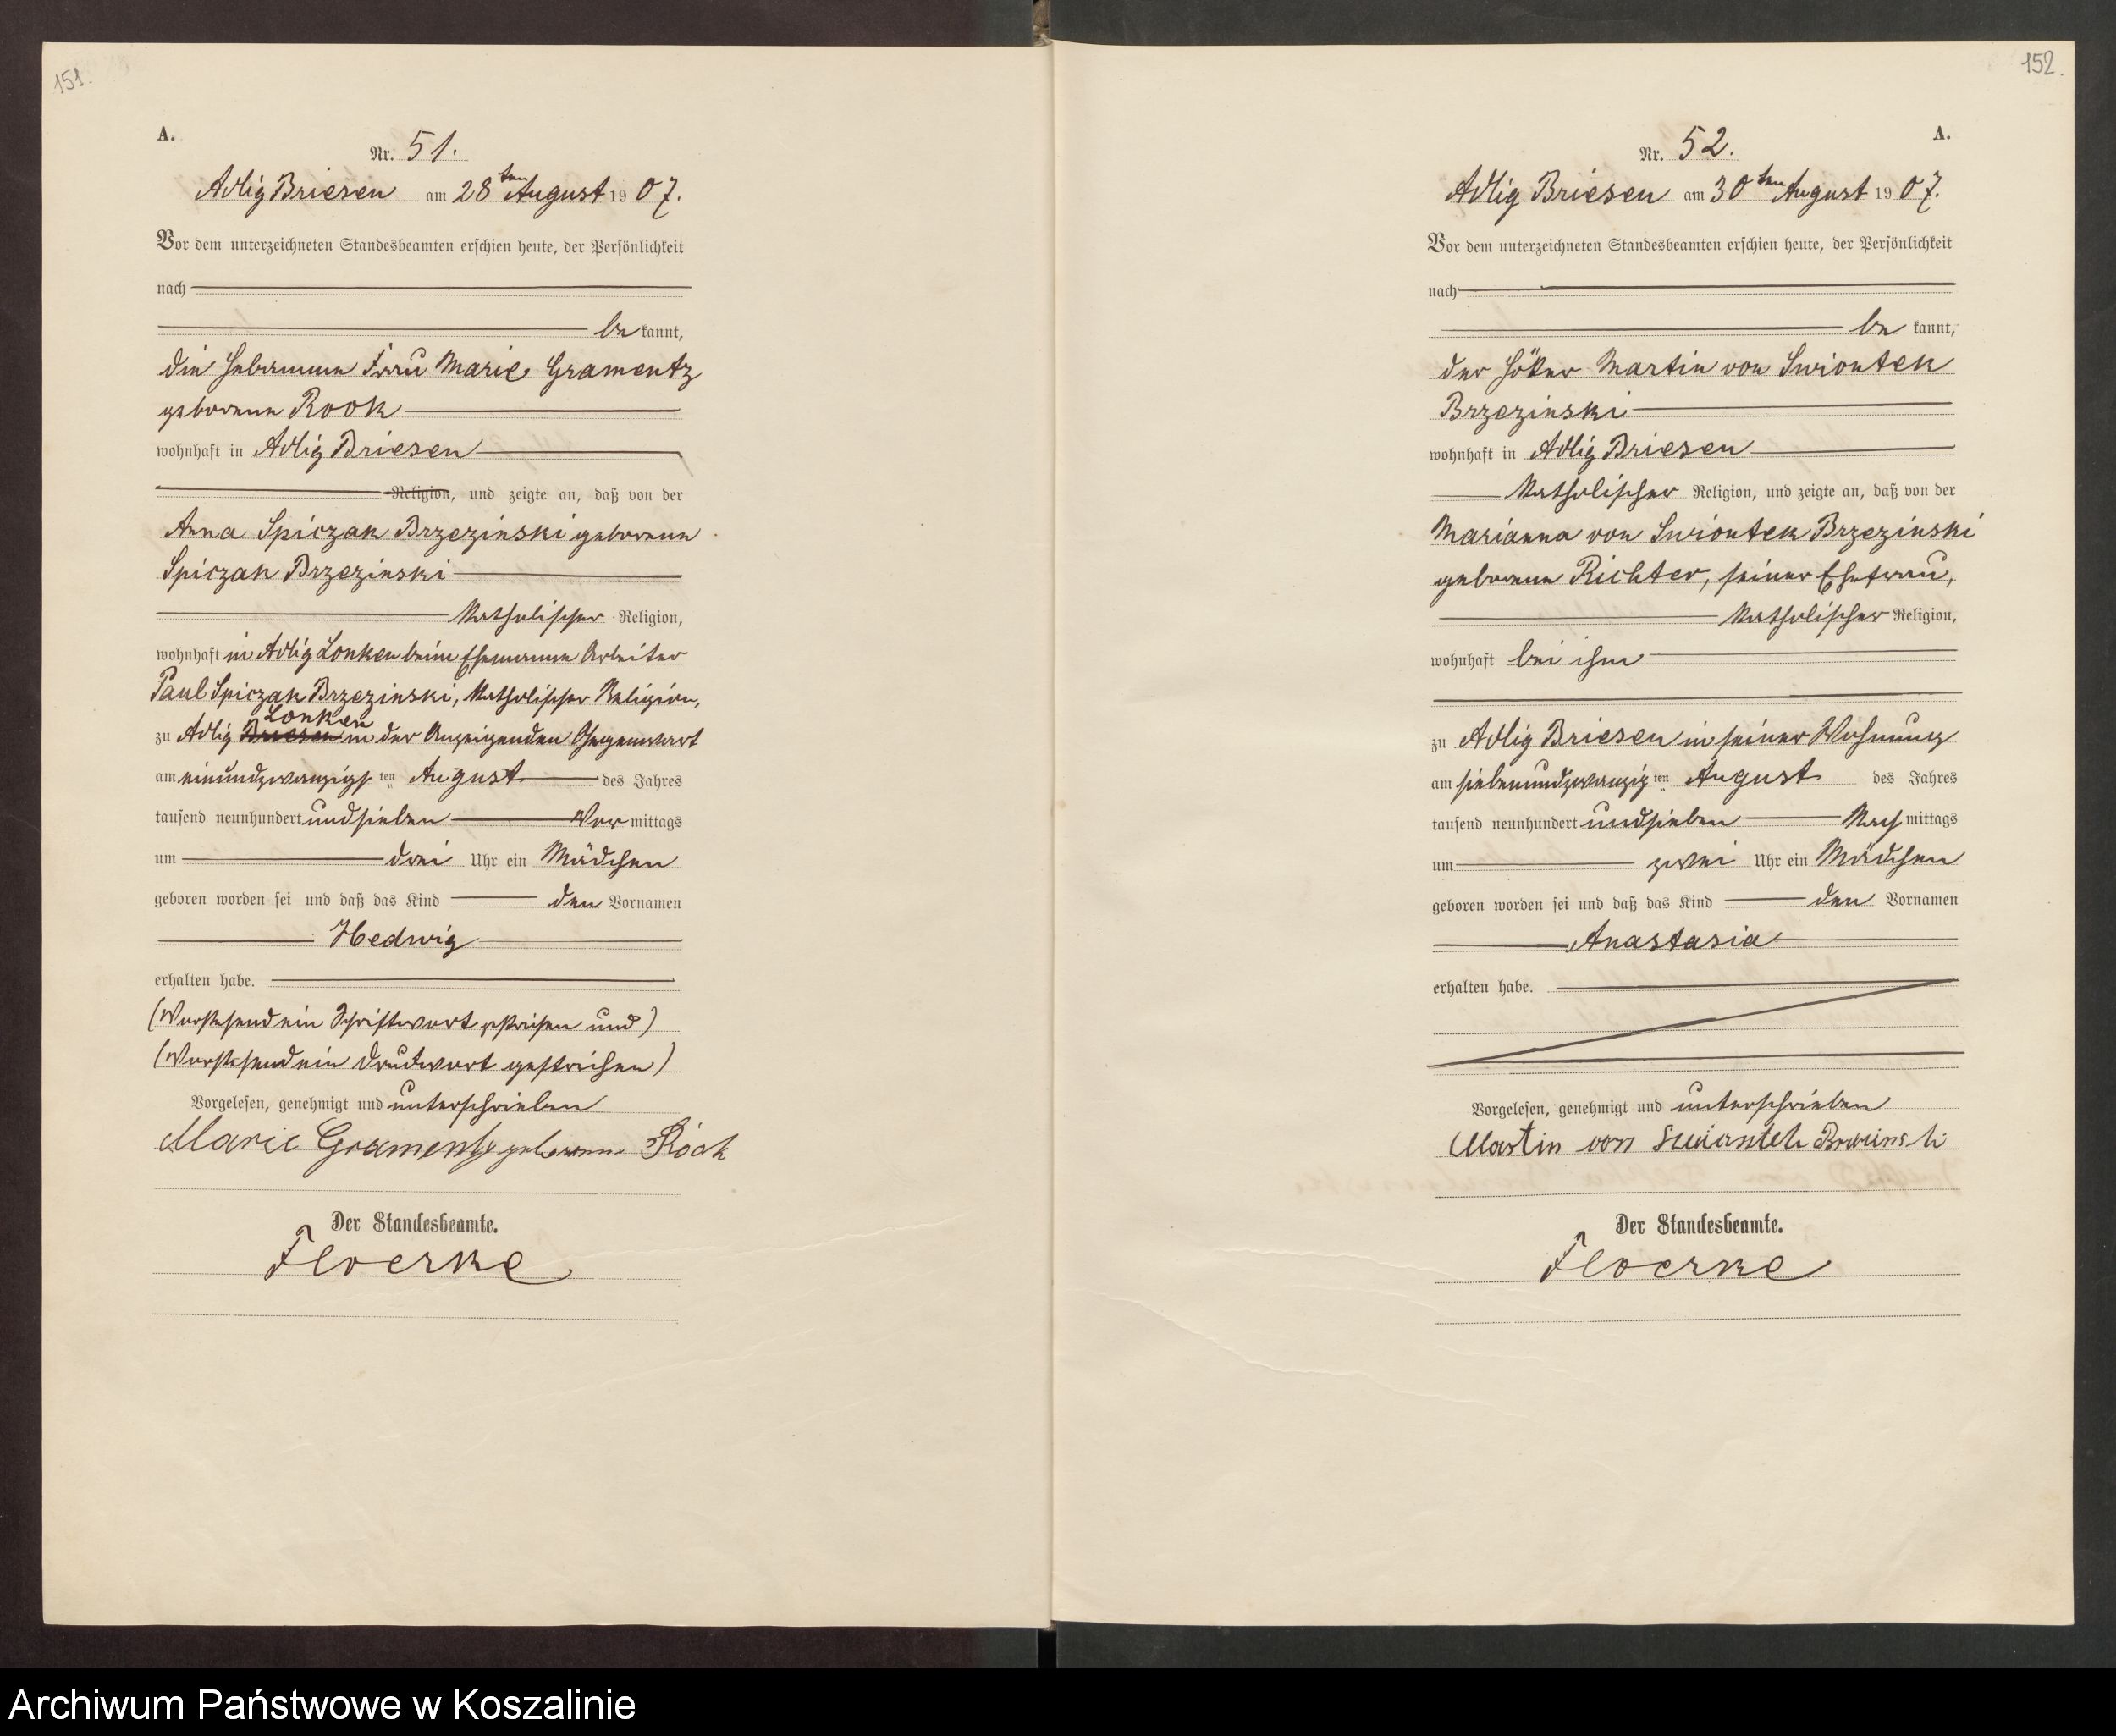 151.
A.
Nr. 51.
Adlig Briesen am 28ten August 1907.
Vor dem unterzeichneten Standesbeamten erschien heute, der Persönlichkeit
nach
be kannt,
die Hebamme Frau Marie Gramentz
geborene Rook
wohnhaft in Adlig Briesen
Religion, und zeigte an, daß von der
Anna Spiczak Brzezinski geborene
Spiczak Brzezinski
katholischer Religion,
wohnhaft in Adlig Lonken beim Ehemanne Arbeiter
Paul Spiczak Brzezinski, katholischer Religion,
Lonken
zu Adlig Briesen in der Anzeigenden Gegenwart
am einundzwanzigsten August des Jahres
tausend neunhundert und sieben Vor mittags
um drei Uhr ein Mädchen
geboren worden sei und daß das Kind den Vornamen
Hedwig
erhalten habe.
(Vorstehend ein Schriftwort gestrichen und)
(Vorstehend ein Druckwort gestrichen)
Vorgelesen, genehmigt und unterschrieben
Marie Gramentz geborene Rook
Der Standesbeamte.
Floerke
152.
A.
Nr. 52.
Adlig Briesen am 30ten August 1907.
Vor dem unterzeichneten Standesbeamten erschien heute, der Persönlichkeit
nach
be kannt,
der Höker Martin von Swiontek
Brzezinski
wohnhaft in Adlig Briesen
katholischer Religion, und zeigte an, daß von der
Marianna von Swiontek Brzezinski
geborene Richter, seiner Ehefrau,
katholischer Religion,
wohnhaft bei ihm
zu Adlig Briesen in seiner Wohnung
am siebenundzwanzigten August des Jahres
tausend neunhundert und sieben Nach mittags
um zwei Uhr ein Mädchen
geboren worden sei und daß das Kind den Vornamen
Anastasia
erhalten habe.
Vorgelesen, genehmigt und unterschrieben
Martin von
Der Standesbeamte.
Floerke
Archiwum Państwowe w Koszalinie